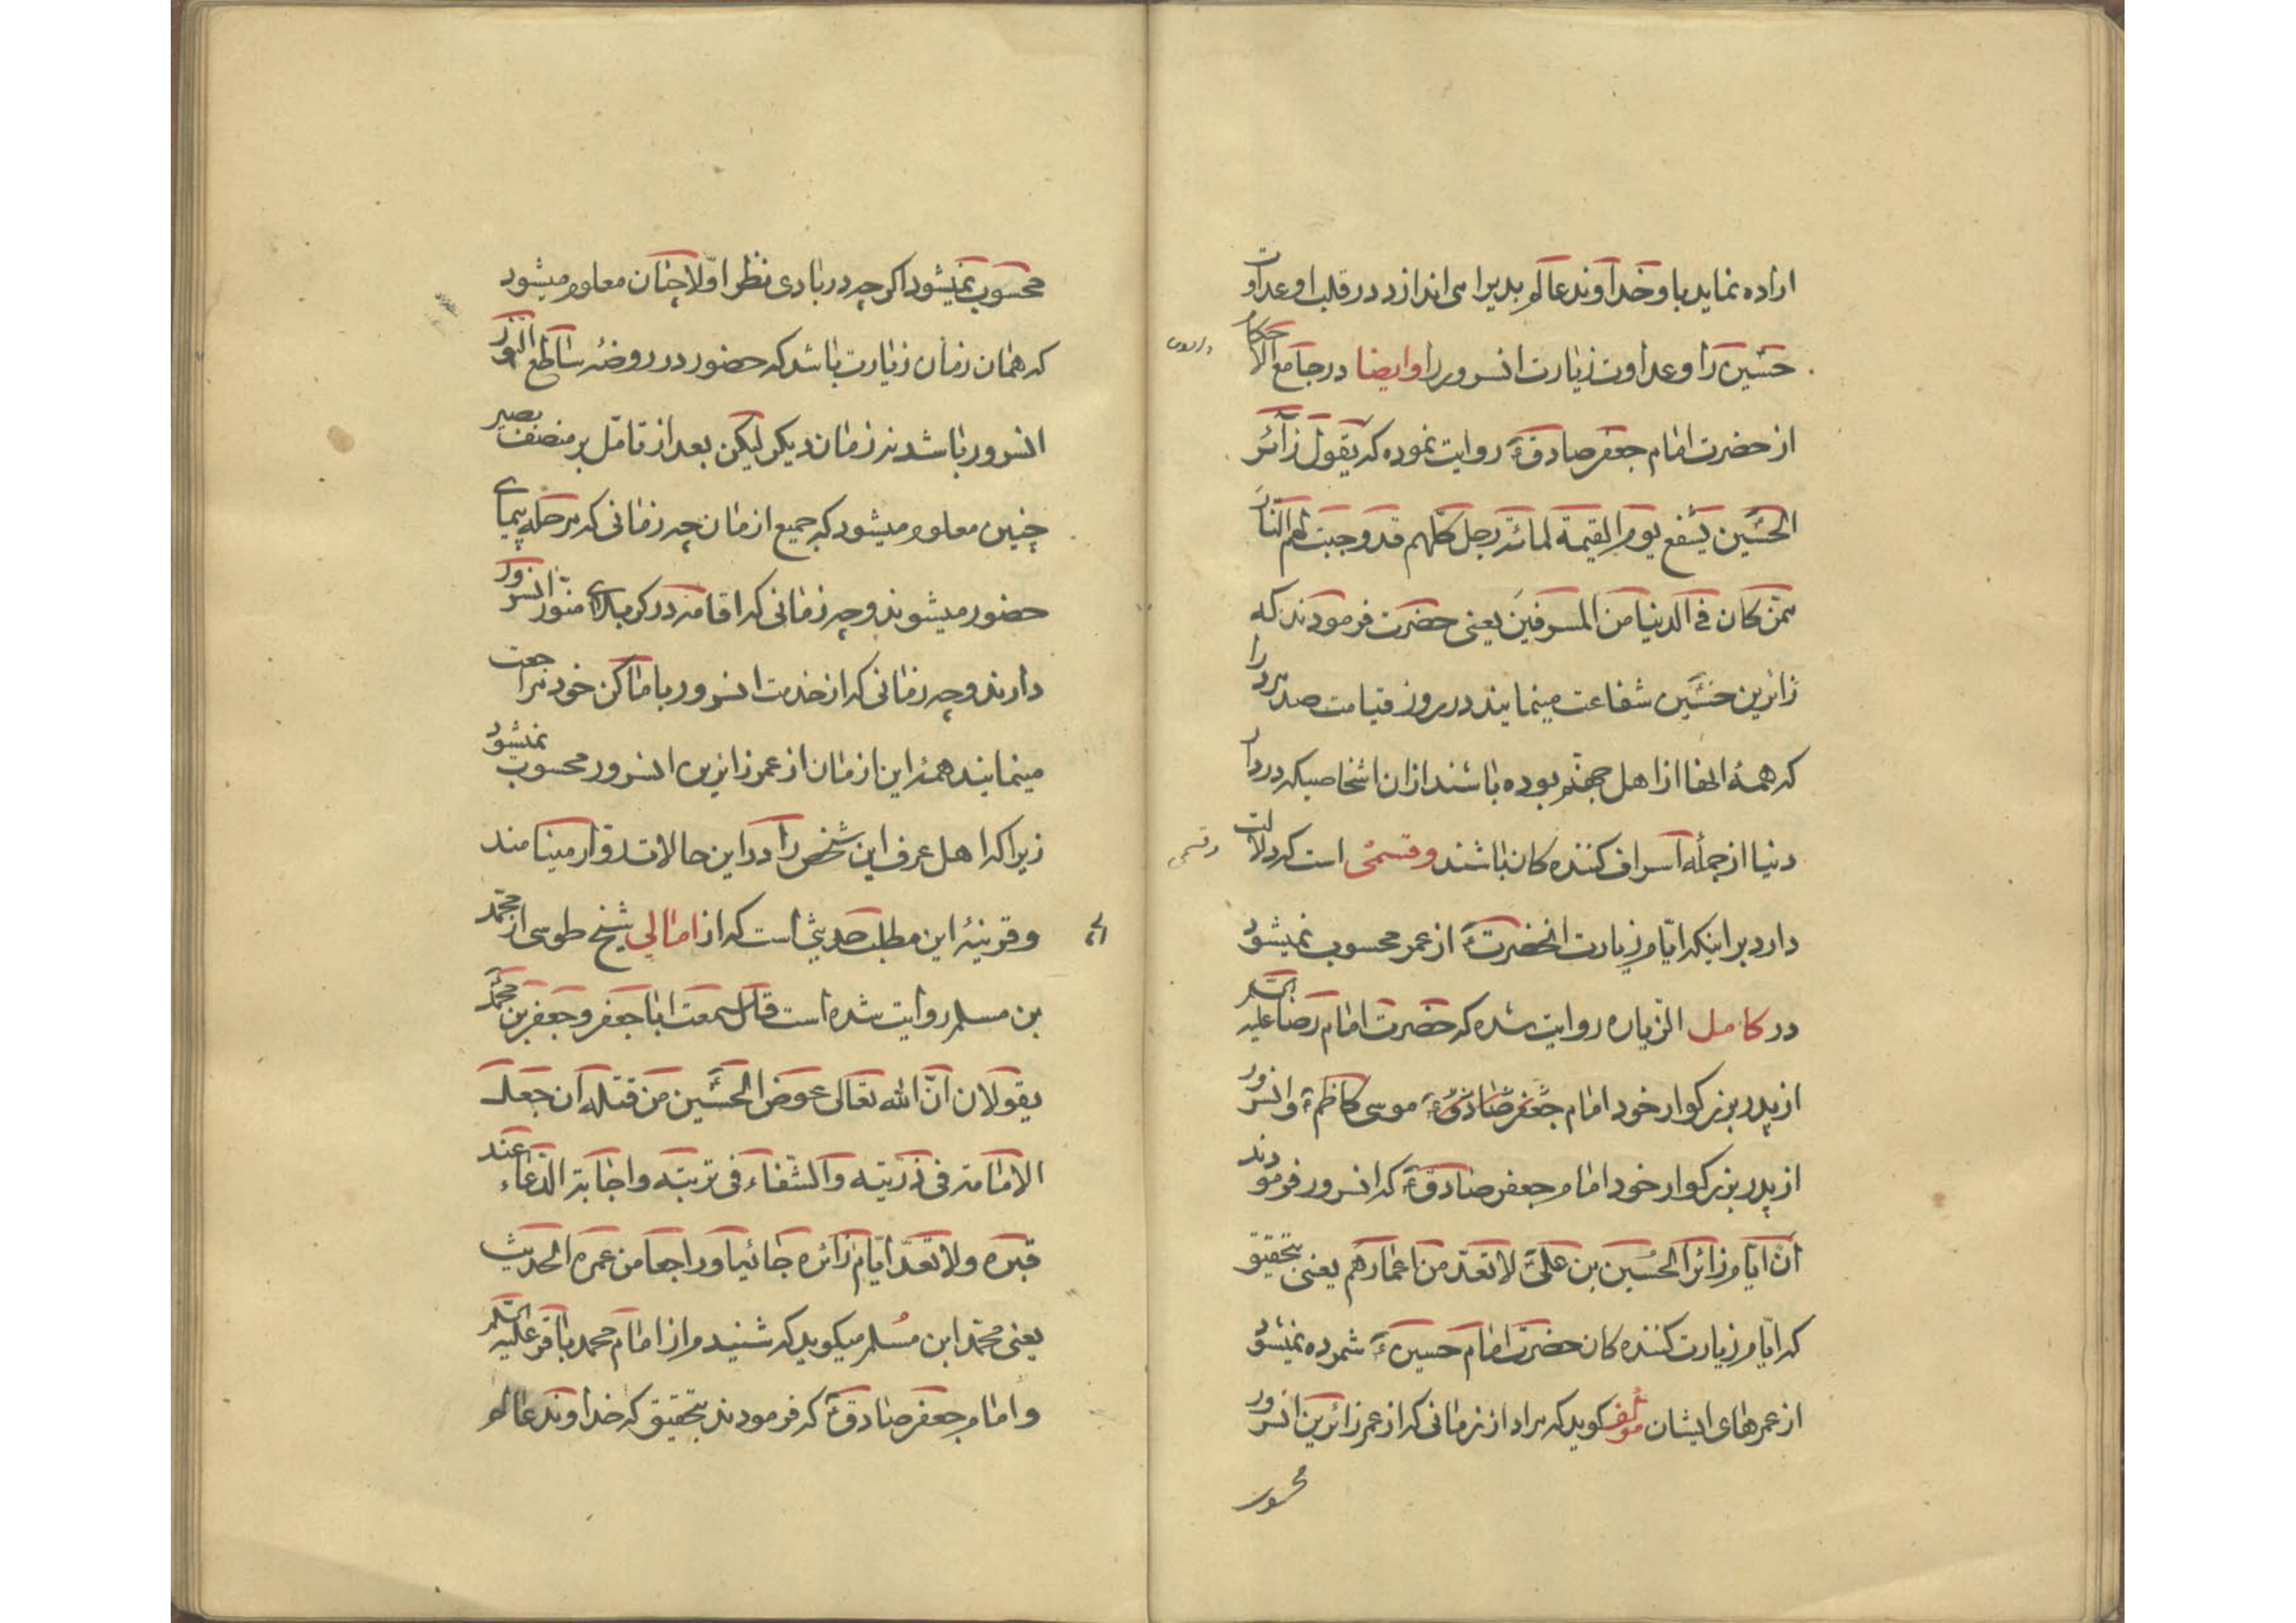 اراده نماید باو خداوند عالم بدیرا می اندازد در قلب او عداوت
حسین را و عداوت زیارت انسرور را وایضا در جامع الاحکام
از حضرت امام جعفر صادقؑ روایت نموده که یقول زائر
الحسین یشفع یوم القیمة لمائة رجل کلهم قد وجبت لهم النار
ممن کان فی الدنیا من المسرفین یعنی حضرت فرمودند که
زائرین حسین شفاعت مینمایند در روز قیامت صد مرد را
که همهٔ انها از اهل جهنم بوده باشند از ان اشخاصیکه در دار
دنیا از جملهٔ اسراف کننده کان باشند وقسمی است که دلالت
وقسمی
دارد بر اینکه ایّام زیارت انحضرتؑ از عمر محسوب نمیشود
در کامل الزیاره روایت شده که حضرت امام رضا علیه السّلم
از پدر بزرکوار خود امام جعفر صادقؑ موسی کاظمؑ وانسرور
از پدر بزرکوار خود امام جعفر صادقؑ که انسرور فرمودند
ان ایام زائر الحسین بن علی لا تعدّ من اعمارهم یعنی بتحقیق
که ایّام زیارت کننده کان حضرت امام حسینؑ شمرده نمیشود
از عمرهای ایشان مؤلف کوید که مراد از زمانی که از عمر زائرین انسرور
محسوب
محسوب نمیشود اکرچه در بادی نظر اوّلا چنان معلوم میشود
که همان زمان زیارت باشد که حضور در روضهٔ ساطع النّور
انسرور باشد نه زمان دیکر لیکن بعد از تامّل بر منصف بصیر
چنین معلوم میشود که جمیع ازمان چه زمانی که مرحله پیمای
حضور میشوند وچه زمانی که اقامه در کربلای منوّر انسرور
دارند وچه زمانی که از خدمت انسرور باماکن خود مراجعت
مینمایند همهٔ این ازمان از عمر زایرین انسرور محسوب نمیشود
زیرا که اهل عرف این شخص را در این حالات زوّار مینامند
وقرینهٔ این مطلب حدیثی است که از امالی شیخ طوسی از محمّد
بن مسلم روایت شده است قال سمعت ابا جعفر وجعفر بن محمّد
یقولان انّ الله تعالی عوض الحسین من قتله ان جعل
الامامة فی ذریّته والشّفاء فی تربته واجابة الدّعاء عند
قبره ولا تعدّ ایّام زائره جائیا وراجعا من عمره الحدیث
یعنی محمّد ابن مسلم میکوید که شنیدم از امام محمد باقر علیه السّلم
وامام جعفر صادقؑ که فرمودند بتحقیق که خداوند عالم